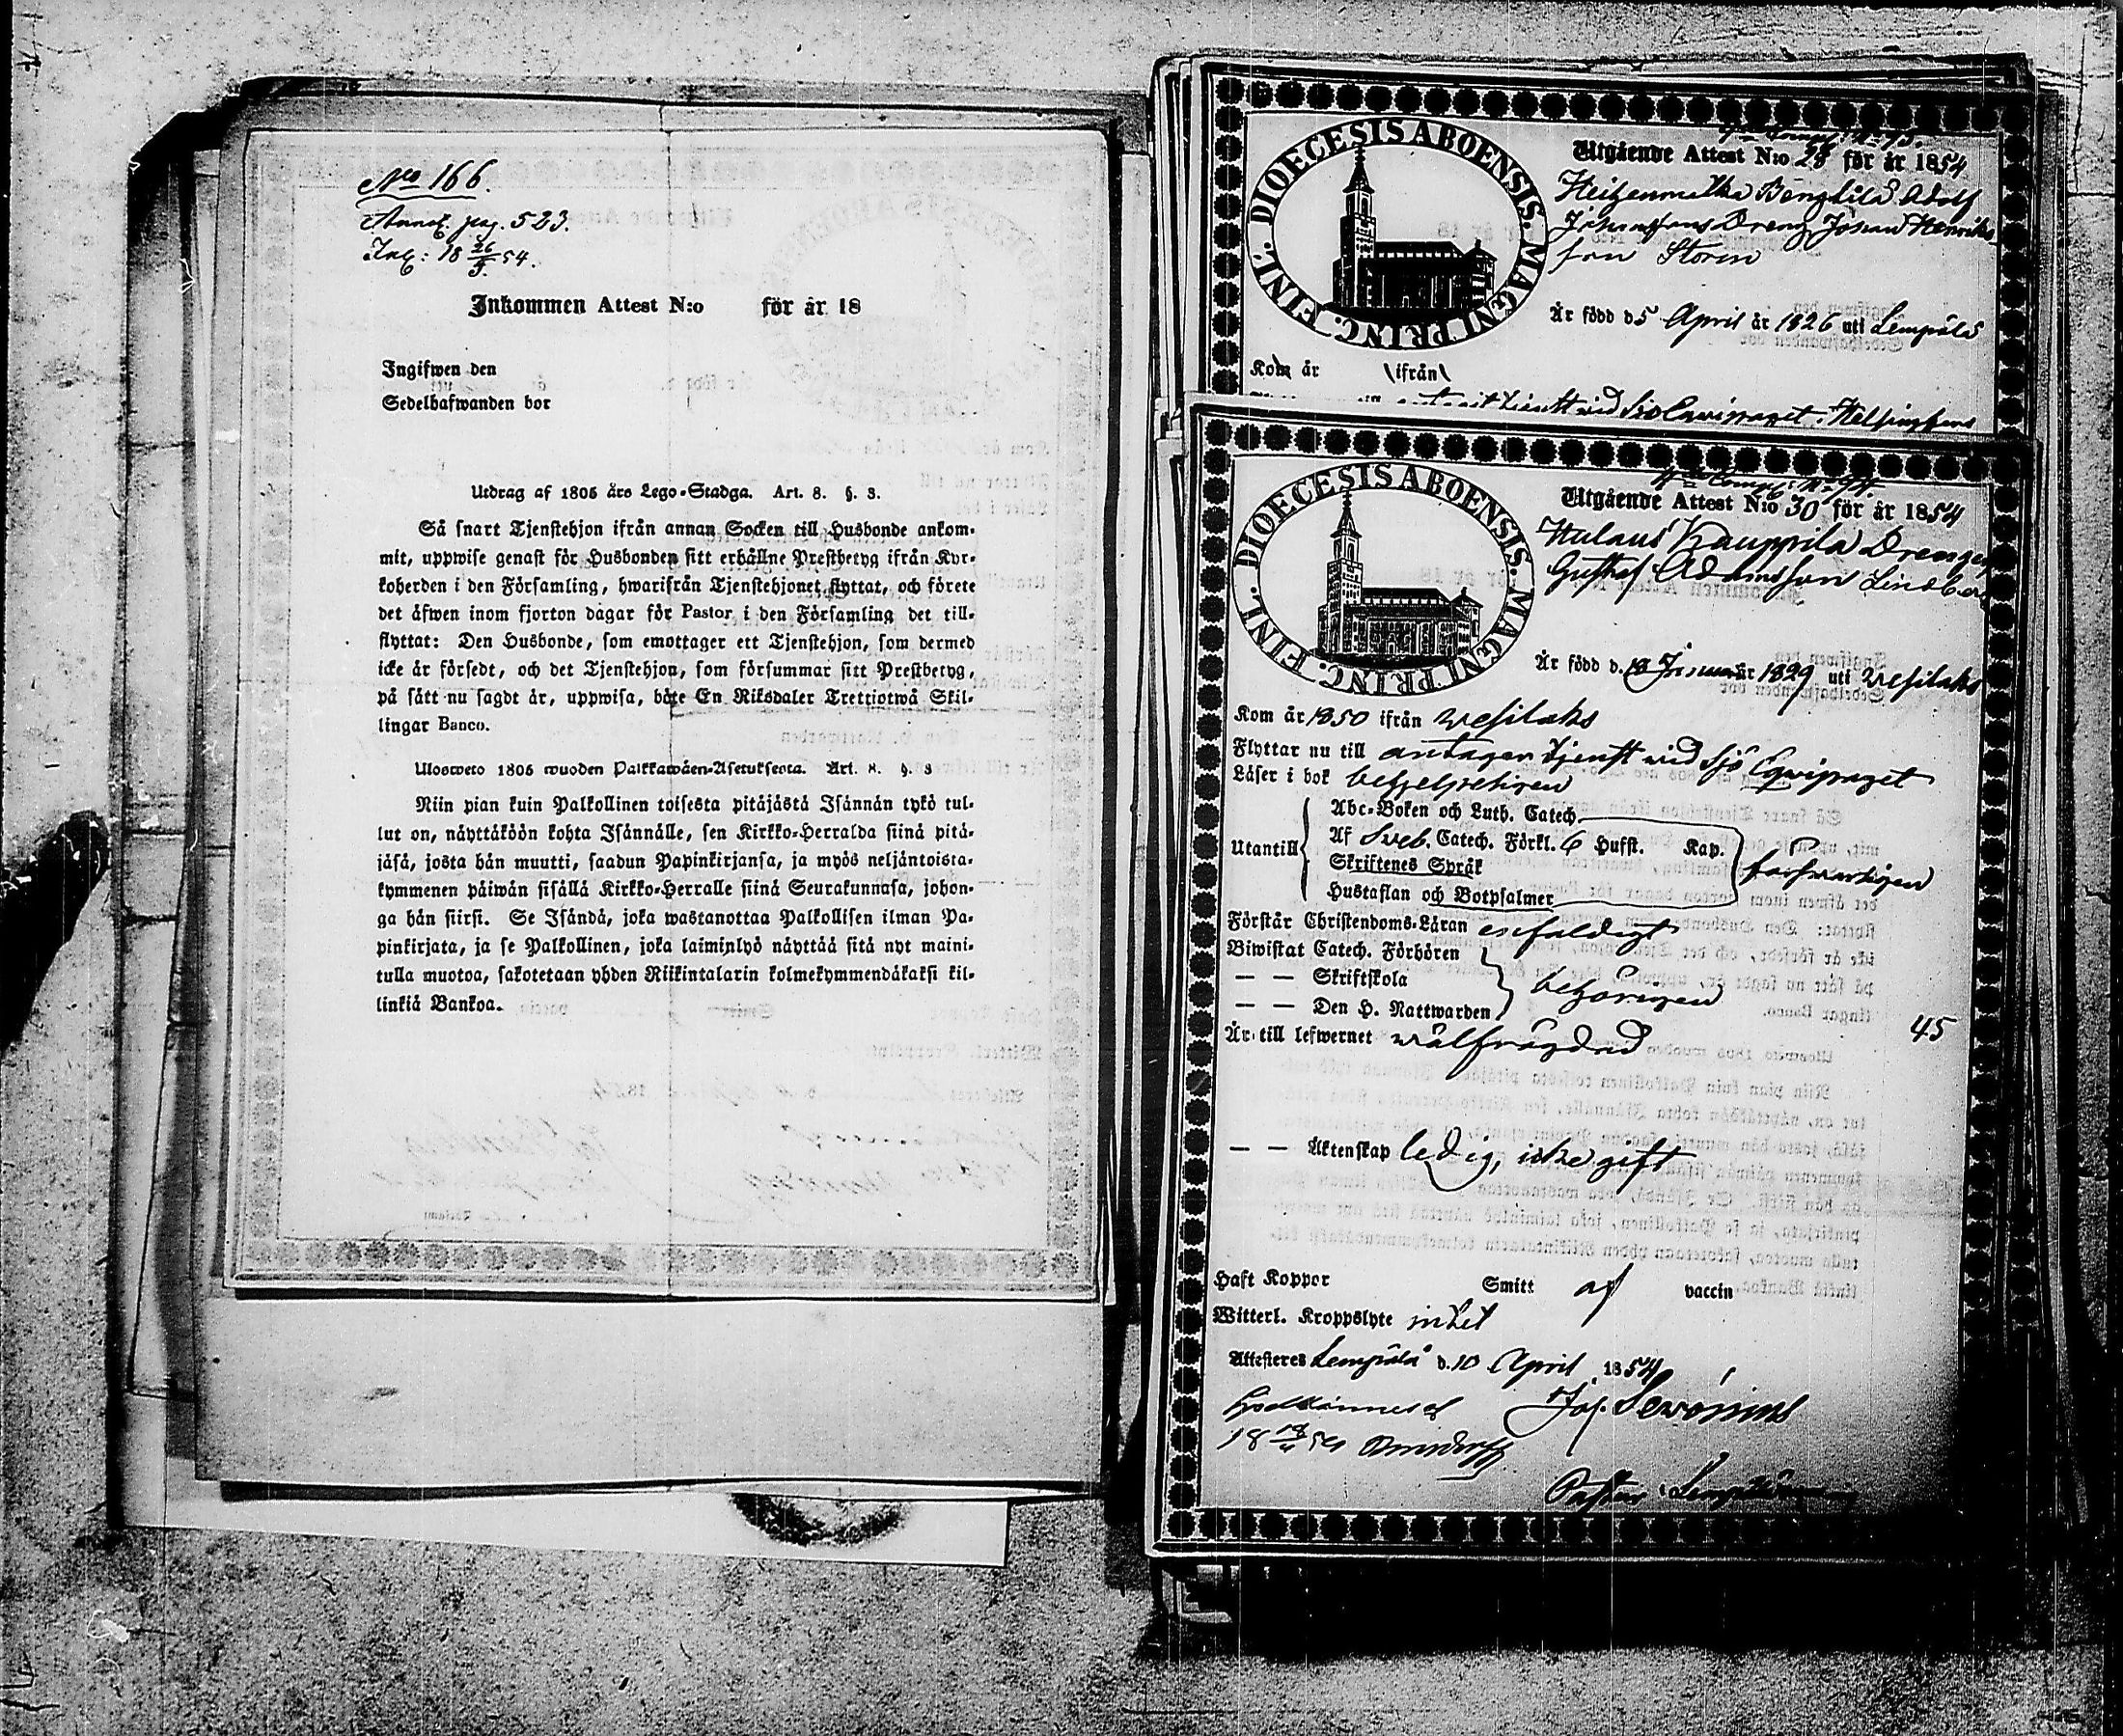 No 166.
Annot. pag. 523.
Ink: 18 26/5 54.
Inkommen Attest N:o för år 18
Ingifwen den
Sedelhafwanden bor
Utdrag af 1805 års Lego-Stadga. Art. 8. §. 3.
Så snart Tjenstehjon ifrån annan Socken till Husbonde ankom-
mit, uppwise genast för Husbonden sitt erhållne Prestbetyg ifrån Kyr-
koherden i den Församling, hwarifrån Tjenstehjonet flyttat, och förete
det äfwen inom fjorton dagar för Pastor i den Församling det till-
flyttat: Den Husbonde, som emottager ett Tjenstehjon, som dermed
icke är försedt, och det Tjenstehjon, som försummar sitt Prestbetyg,
på sätt nu sagdt är, uppwisa, böte En Riksdaler Trettiotwå Skil-
lingar Banco.
Ulosweto 1805 wuoden Palkkawäen-Asetuksesta. Art. 8. §. 3
Niin pian kuin Palkollinen toisesta pitäjästä Isännän tykö tul-
lut on, näyttäköön kohta Isännälle, sen Kirkko-Herralda siinä pitä-
jäsä, josta hän muutti, saadun Papinkirjansa, ja myös neljäntoista-
kymmenen päiwän sisällä Kirkko-Herralle siinä Seurakunnasa, johon-
ga hän siirsi. Se Isändä, joka wastanottaa Palkollisen ilman Pa-
pinkirjata, ja se Palkollinen, joka laiminlyö näyttää sitä nyt maini-
tulla muotoa, sakotetaan yhden Riikintalarin kolmekymmendäkaksi kil-
linkiä Bankoa.
DIOECESIS ABOENSIS. MAGNI PRINC. FINL.
Utgående Attest N:o 28 för år 1854
Adolf
Johanssons Dreng Johan Henriks-
son Storm
Är född d. 5 April år 1826 uti Lempälä
Kom år ifrån
DIOECESIS ABOENSIS. MAGNI PRINC. FINL.
Utgående Attest N:o 30 för år 1854
Kauppila Drengen
Gustaf Adamsson Lindberg
Är född d. Januari 1829 uti Wesilaks
Kom år 1850 ifrån Wesilaks
Flyttar nu till antagen tjenst wid Sjö Eqwipaget
Läser i bok
Utantill
Abc-Boken och Luth. Catech.
Af Sveb. Catech. Förkl. 6 Hufst. Kap.
Skriftenes Språk
Hustaflan och Botpsalmer
försvarligen
Förstår Christendoms-Läran enfaldigt
Biwistat Catech. Förhören
— — Skriftskola
— — Den H. Nattwarden
behörigen
Är till lefwernet wälfrägdad
45
— — Äktenskap ledig, icke gift
Haft Koppor Smitt af vaccin
Witterl. Kroppslyte intet
Attesteres Lempälä d. 10 April 1854
Godkännes
18 54